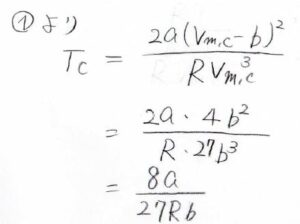 ①より
Tc = 2a(Vm,c-b)² / RVm,c³
= 2a・4b² / R・27b³
= 8a / 27Rb